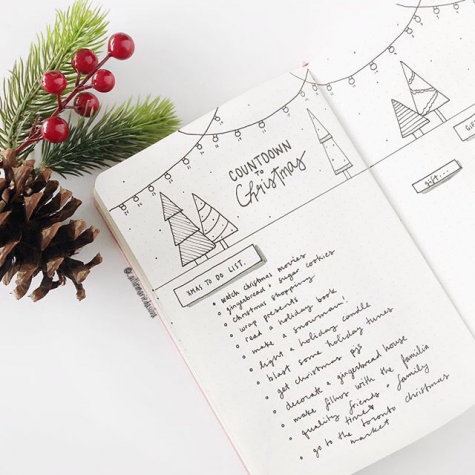 COUNTDOWN
to
Christmas
XMAS TO DO LIST.
◦ watch christmas movies
◦ gingerbread + sugar cookies
◦ christmas shopping
◦ wrap presents
◦ read a holiday book
◦ make a snowman!
◦ light a holiday candle
◦ blast some holiday tunes
◦ get christmas pjs
◦ decorate a gingerbread house
◦ make filhos with the familia
◦ quality friends + family
times
◦ go to the toronto christmas
market
gift...